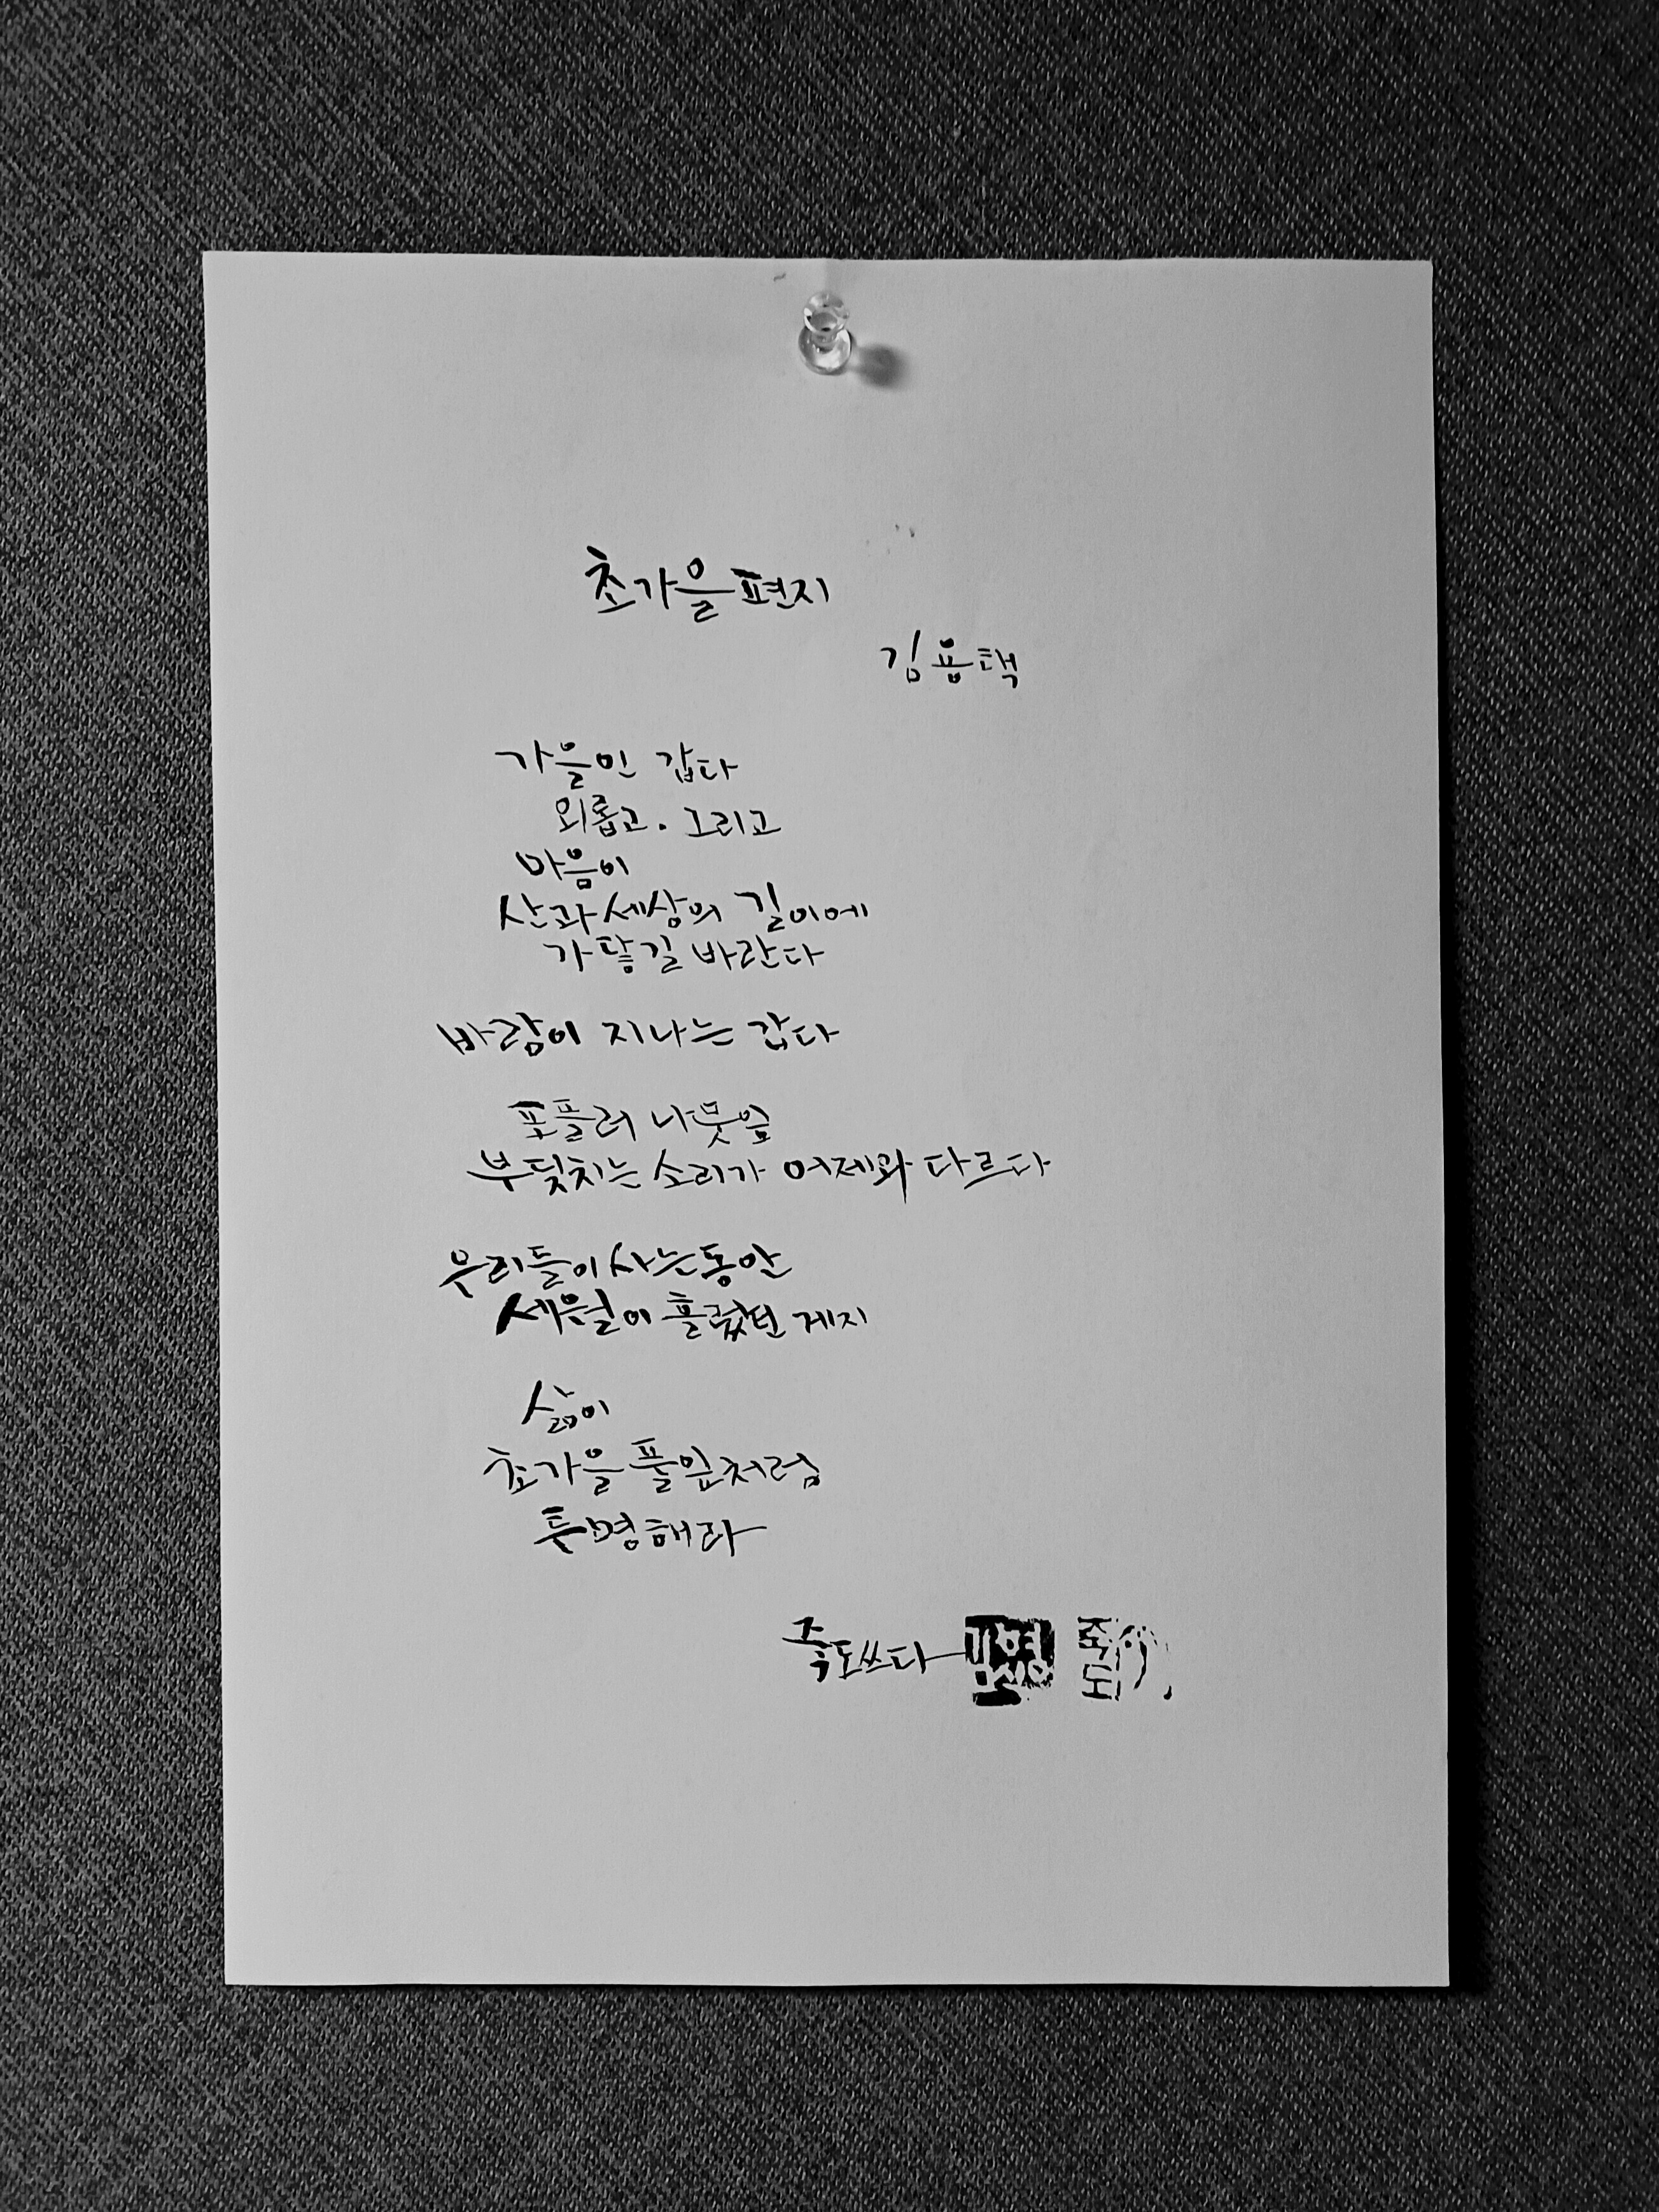 초가을 편지
김용택
가을인 갑다
외롭고. 그리고
마음이
산과 세상의 깊이에
가 닿길 바란다
바람이 지나는 갑다
포플러 나뭇잎
부딪치는 소리가 어제와 다르다
우리들이 사는 동안
세월이 흘렀던 게지
삶이
초가을 풀잎처럼
투명해라
죽도쓰다
죽도